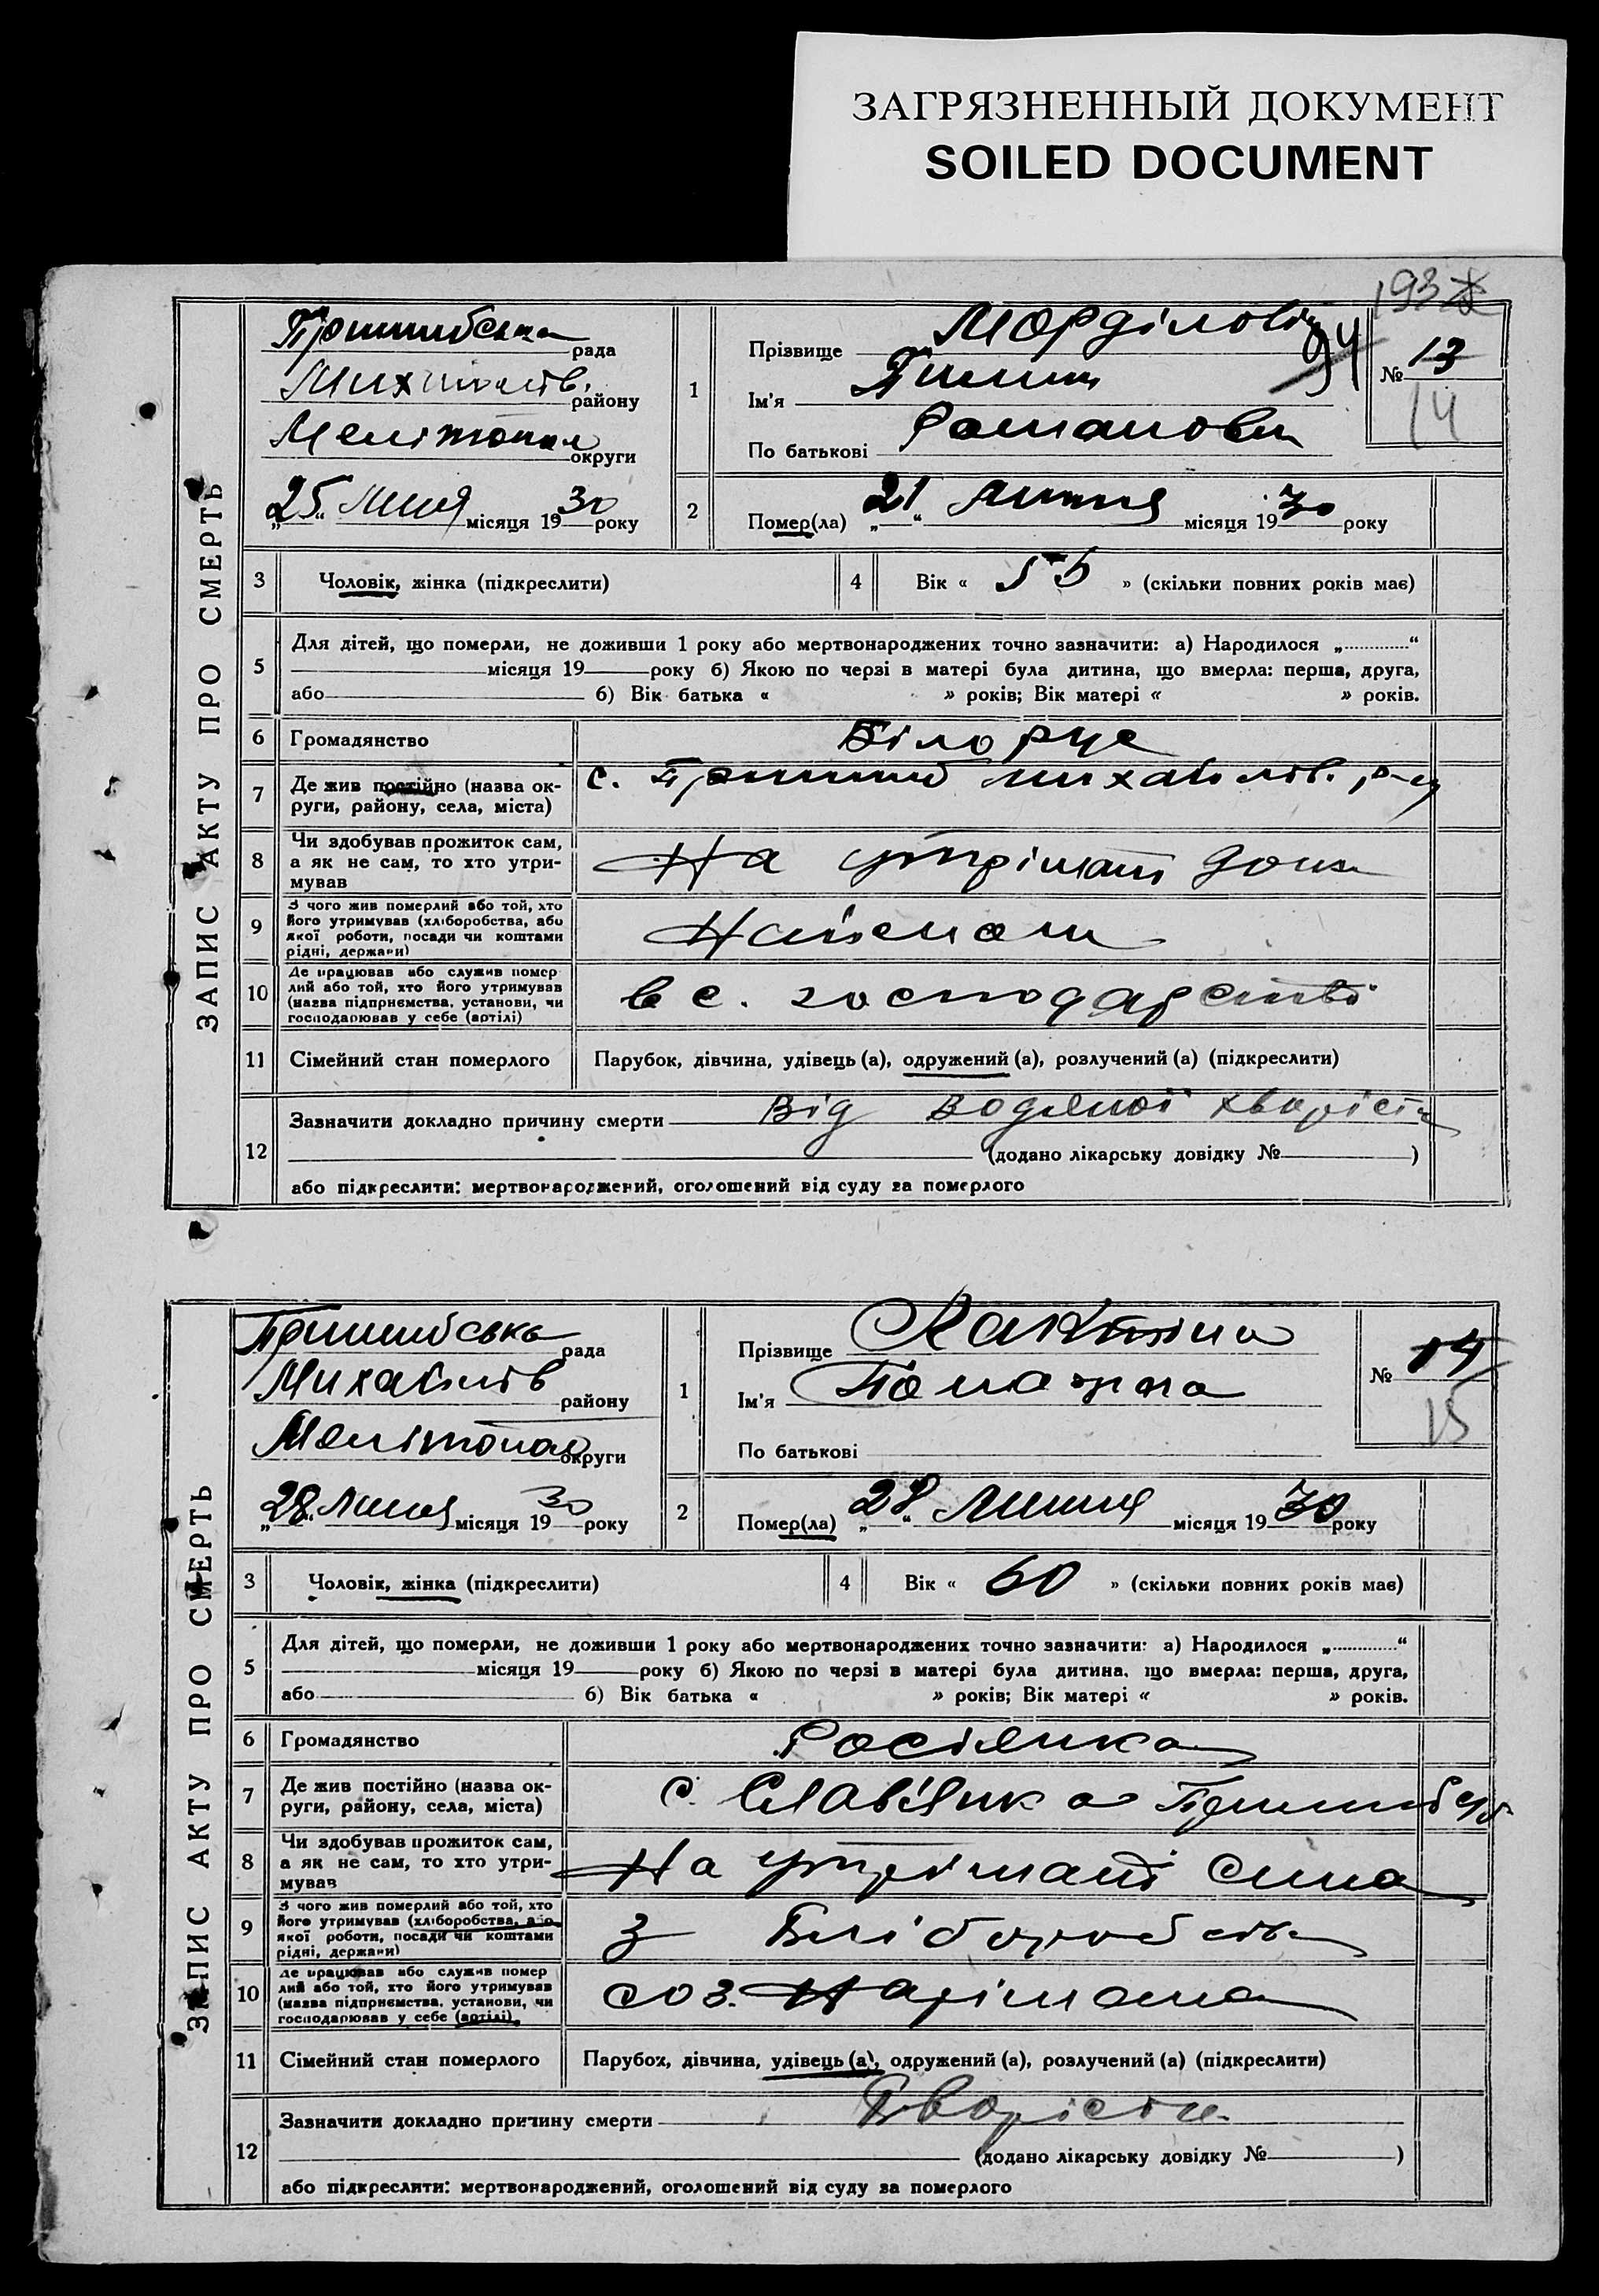 ЗАГРЯЗНЕННЫЙ ДОКУМЕНТ
SOILED DOCUMENT
193
ЗАПИС АКТУ ПРО СМЕРТЬ
Пришибська рада
району
Мелітопол округи
„25“ Липня місяця 1930 року
1
Прізвище Морділові
Ім'я Пилип
По батькові Романович
№ 13
14
2
Помер(ла) „21“ Липня місяця 1930 року
3 Чоловік, жінка (підкреслити)
4 Вік « 55 » (скільки повних років має)
5
Для дітей, що померли, не доживши 1 року або мертвонароджених точно зазначити: а) Народилося „ “
місяця 19 року б) Якою по черзі в матері була дитина, що вмерла: перша, друга,
або б) Вік батька « » років; Вік матері « » років.
6 Громадянство Білорус
7 Де жив постійно (назва ок-
руги, району, села, міста)
с. Пришиб Михайлів. р-ну
8 Чи здобував прожиток сам,
а як не сам, то хто утри-
мував
На утрімані
9 З чого жив померлий або той, хто
його утримував (хліборобства, або
якої роботи, посади чи коштами
рідні, держави)
10 Де працював або служив помер
лий або той, хто його утримував
(назва підприємства, установи, чи
господарював у себе (артілі)
в с. господарстві
11 Сімейний стан померлого Парубок, дівчина, удівець (а), одружений (а), розлучений (а) (підкреслити)
12 Зазначити докладно причину смерти Від водяної хворісти
(додано лікарську довідку № )
або підкреслити: мертвонароджений, оголошений від суду за померлого
ЗАПИС АКТУ ПРО СМЕРТЬ
Пришибська рада
Михайлів району
Мелітопол округи
„28“ Липня місяця 1930 року
1
Прізвище
Ім'я
По батькові
№ 14
15
2
Помер(ла) „28“ Липня місяця 1930 року
3 Чоловік, жінка (підкреслити)
4 Вік « 60 » (скільки повних років має)
5
Для дітей, що померли, не доживши 1 року або мертвонароджених точно зазначити: а) Народилося „ “
місяця 19 року б) Якою по черзі в матері була дитина, що вмерла: перша, друга,
або б) Вік батька « » років; Вік матері « » років.
6 Громадянство Росіянка
7 Де жив постійно (назва ок-
руги, району, села, міста)
с. Славянка Пришиб с/р
8 Чи здобував прожиток сам,
а як не сам, то хто утри-
мував
На утрімані сина
9 З чого жив померлий або той, хто
його утримував (хліборобства, або
якої роботи, посади чи коштами
рідні, держави)
З Хліборобств
10 Де працював або служив помер
лий або той, хто його утримував
(назва підприємства, установи, чи
господарював у себе (артілі)
соз. Нарімана
11 Сімейний стан померлого Парубок, дівчина, удівець (а), одружений (а), розлучений (а) (підкреслити)
12 Зазначити докладно причину смерти Хворісти
(додано лікарську довідку № )
або підкреслити: мертвонароджений, оголошений від суду за померлого